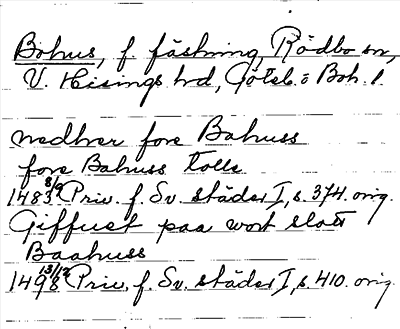 Bohus, f. fästning, Rödbo sn,
V. Hisings hd, Göteb. o Boh. l.
nedher fore Bahuss
fore Bahuss tolle
1483 8/9 Priv. f. Sv. städer I, s. 374. orig.
Giffuet paa wort slott
Baahuss
1498 13/12 Priv. f. Sv. städer I, s. 410. orig.